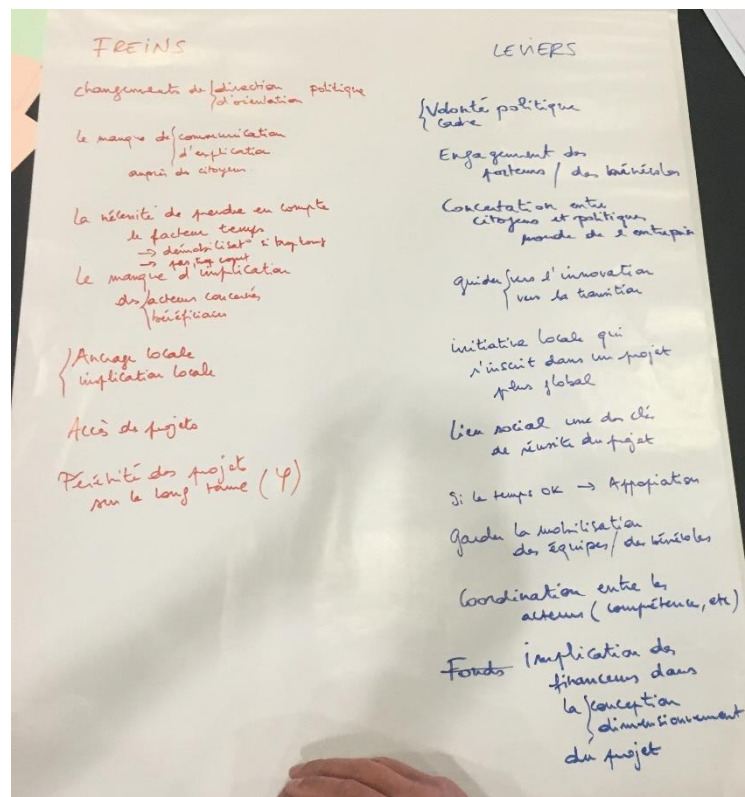 FREINS
changements de { direction politique
d'orientation
le manque de { communication
d'explication
auprès des citoyens
La nécessité de prendre en compte
le facteur temps
→ démobilisat° si trop long
→ si trop court
Le manque d'implication
des { acteurs concernés
bénéficiaires
{ Ancrage locale
implication locale
Accès de projets
Pérénité des projet
sur le long terme (φ)
LEVIERS
{ Volonté politique
cadre
Engagement des
porteurs / des bénévoles
Concertation entre
citoyens et politiques
monde de l'entreprise
guider { vers l'innovation
vers la transition
initiative locale qui
s'inscrit dans un projet
plus global
Lien social une des clé
de réussite du projet
Si le temps OK → Appropriation
Garder la mobilisation
des équipes / des bénévoles
Coordination entre les
acteurs (compétence, etc)
Fonds Implication des
financeurs dans
la { conception
dimensionnement
du projet